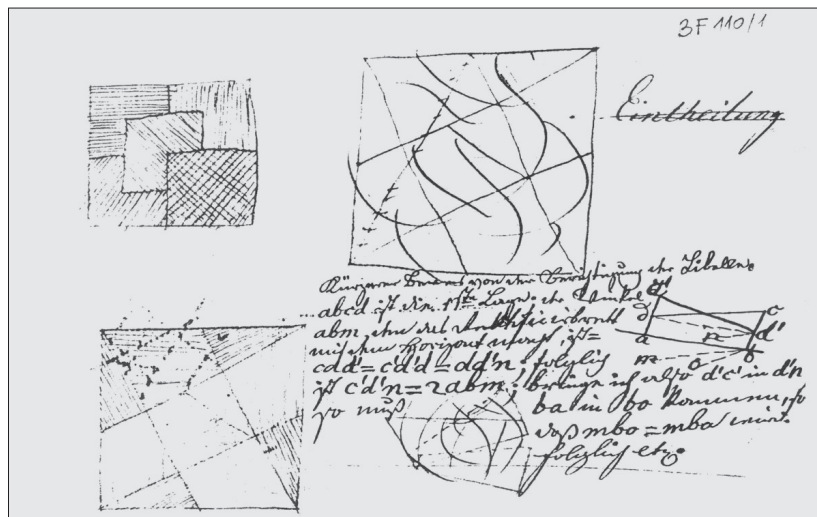 3F 110/1
Eintheilung
Kürzerer Beweis von der Berichtigung der Libelle.
abcd ist die 1ste Lage; der Winkel
abm, den das
mit dem Horizont macht, ist =
cdd' = c'd'd = dd'n; folglich
ist c'd'n = 2abm; bringe ich also d'c' in d'n
so muß
ba in bo kommen, so
daß mbo = mba wird.
folglich etc.
d'
d
c
a
n
d'
m
o
b